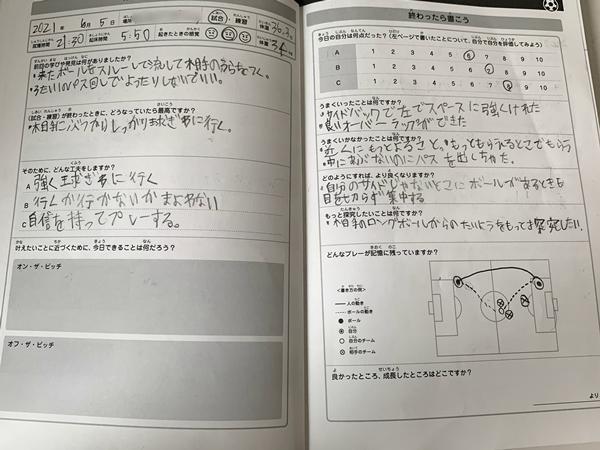 2021年 6月 5日 場所 試合・練習 体温 36.3
就寝時間 21:30 起床時間 5:50 起きたときの感覚 体重 34
前回の学びや発見は何がありましたか?
・来たボールをスルーして流して相手のうらをつく。
・うたいパス回しでよったりしないでいい。
(試合・練習)が終わったときに、どうなっていたら最高ですか?
・相手にぶつかりしっかり
そのために、どんな工夫をしますか?
A 強く
B 行くか行かないかまよわない
C 自信を持ってプレーする。
叶えたいことに近づくために、今日できることは何だろう?
オン・ザ・ピッチ
オフ・ザ・ピッチ
終わったら書こう
今日の自分は何点だった?(左ページで書いたことについて、自分で自分を評価してみよう)
A 1 2 3 4 5 6 7 8 9 10
B 1 2 3 4 5 6 7 8 9 10
C 1 2 3 4 5 6 7 8 9 10
うまくいったことは何ですか?
・サイドバックで左でスペースに強くけれた
・良いオーバーラップができた
うまくいかなかったことは何ですか?
・近くにもっとよること。もっともらえるとこでもらう
・中にあぶないのにパスを出しちゃた。
どのようにすれば、より良くなりますか?
・自分のサイドじゃないとこにボールがあるときも
目を切らず集中する
もっと探究したいことは何ですか?
・相手のロングボールからのたいようをもっと探究したい。
どんなプレーが記憶に残っていますか?
<書き方の例>
人の動き
ボールの動き
ボール
自分
自分のチーム
相手のチーム
良かったところ、成長したところはどこですか?
より